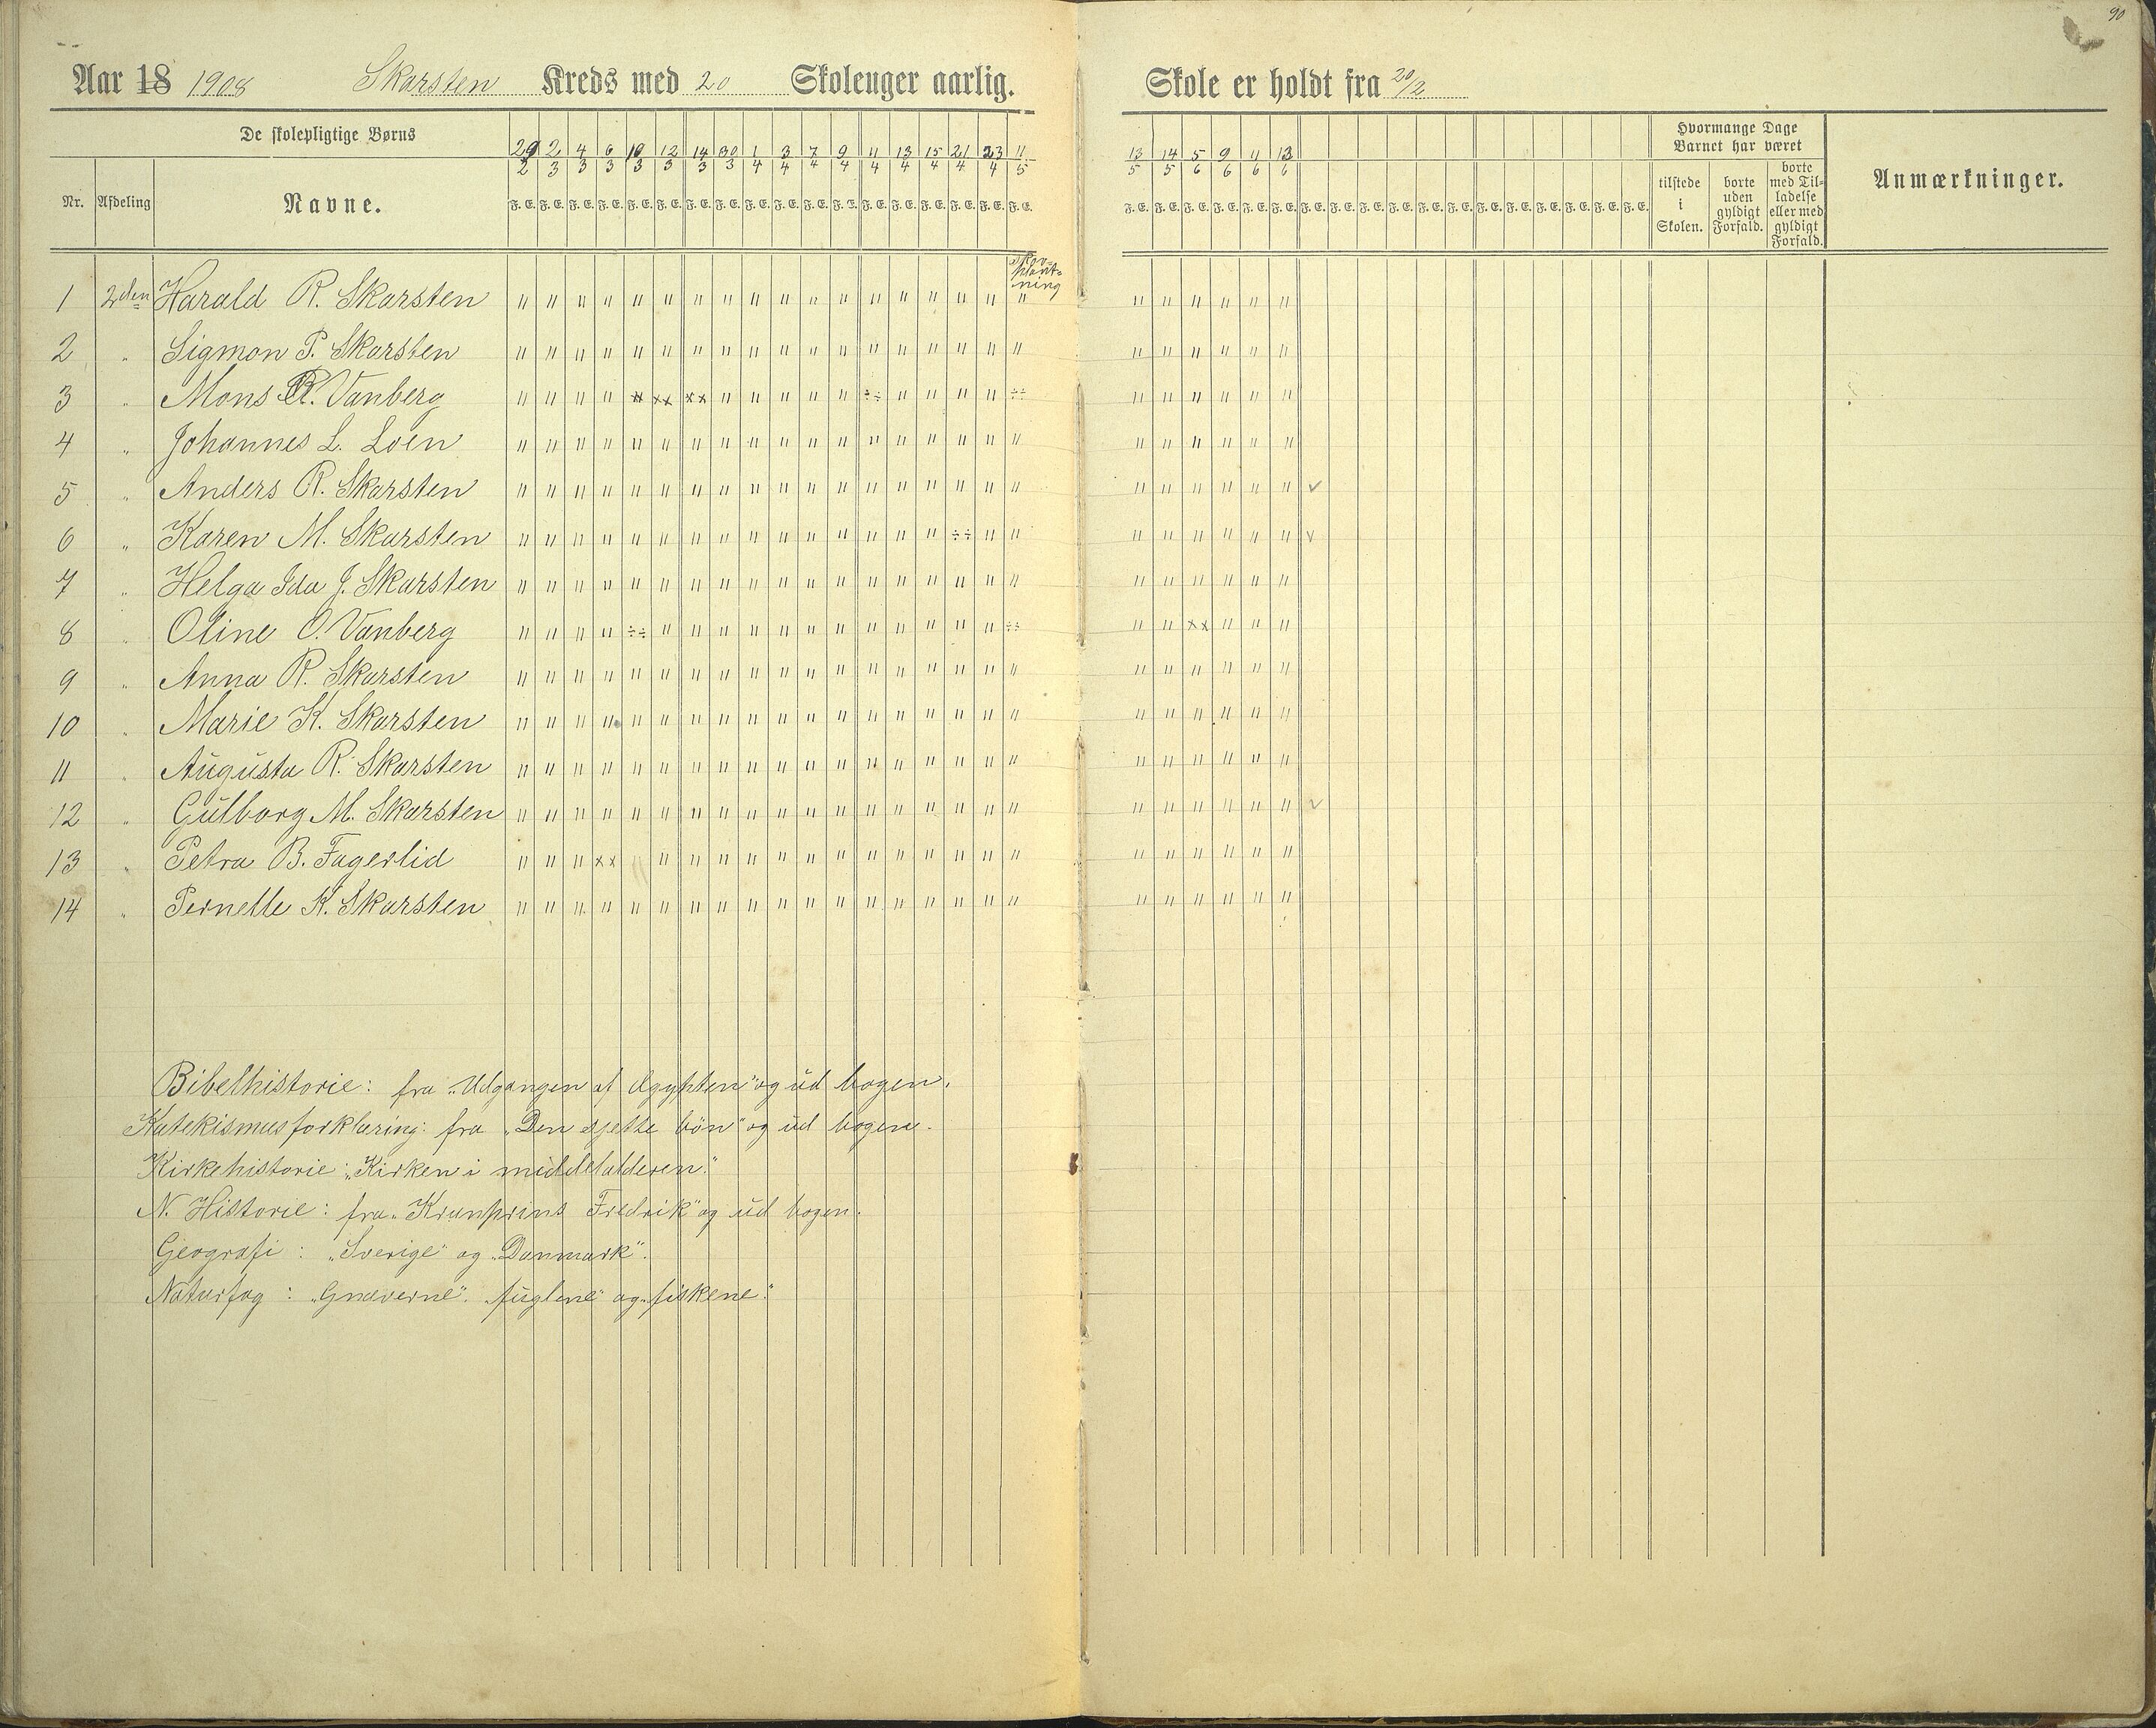 90
Aar 18 1908 Skarsten Kreds med 20 Skoleuger aarlig. Skole er holdt fra 20/2
De skolepligtige Børns
Hvormange Dage Barnet har været
29/2 2/3 4/3 6/3 10/3 12/3 14/3 30/3 1/4 3/4 7/4 9/4 11/4 13/4 15/4 21/4 23/4 11/5 13/5 14/5 5/6 9/6 11/6 13/6
Nr. Afdeling Navne. F. E. F. E. F. E. F. E. F. E. F. E. F. E. F. E. F. E. F. E. F. E. F. E. F. E. F. E. F. E. F. E. F. E. F. E.
F. E. F. E. F. E. F. E. F. E. F. E. F. E. F. E. F. E. F. E. F. E. F. E. F. E. F. E. F. E. F. E. F. E. F. E.
tilstede i Skolen.
borte uden gyldigt Forfald.
borte med Tilladelse eller med gyldigt Forfald.
Anmærkninger.
Skov-
plant-
ning
1 2den Harald R. Skarsten
2 " Sigmon P. Skarsten
3 " Mons R. Vanberg
4 " Johannes L. Loen
5 " Anders R. Skarsten
6 " Karen M. Skarsten
7 " Helga Ida J. Skarsten
8 " Oline O. Vanberg
9 " Anna R. Skarsten
10 " Marie K. Skarsten
11 " Augusta R. Skarsten
12 " Gulborg M. Skarsten
13 " Petra B. Fagerlid
14 " Pernelle K. Skarsten
Bibelhistorie: fra "Udgangen af Ægypten" og ud bogen.
Katekismusforklaring: fra "Den sjette bön" og ud bogen.
Kirkehistorie: "Kirken i middelalderen."
N. Historie: fra "Kronprins Fredrik" og ud bogen.
Geografi: "Sverige" og "Danmark".
Naturfag: "Gnaverne". "fuglene" og "fiskene."